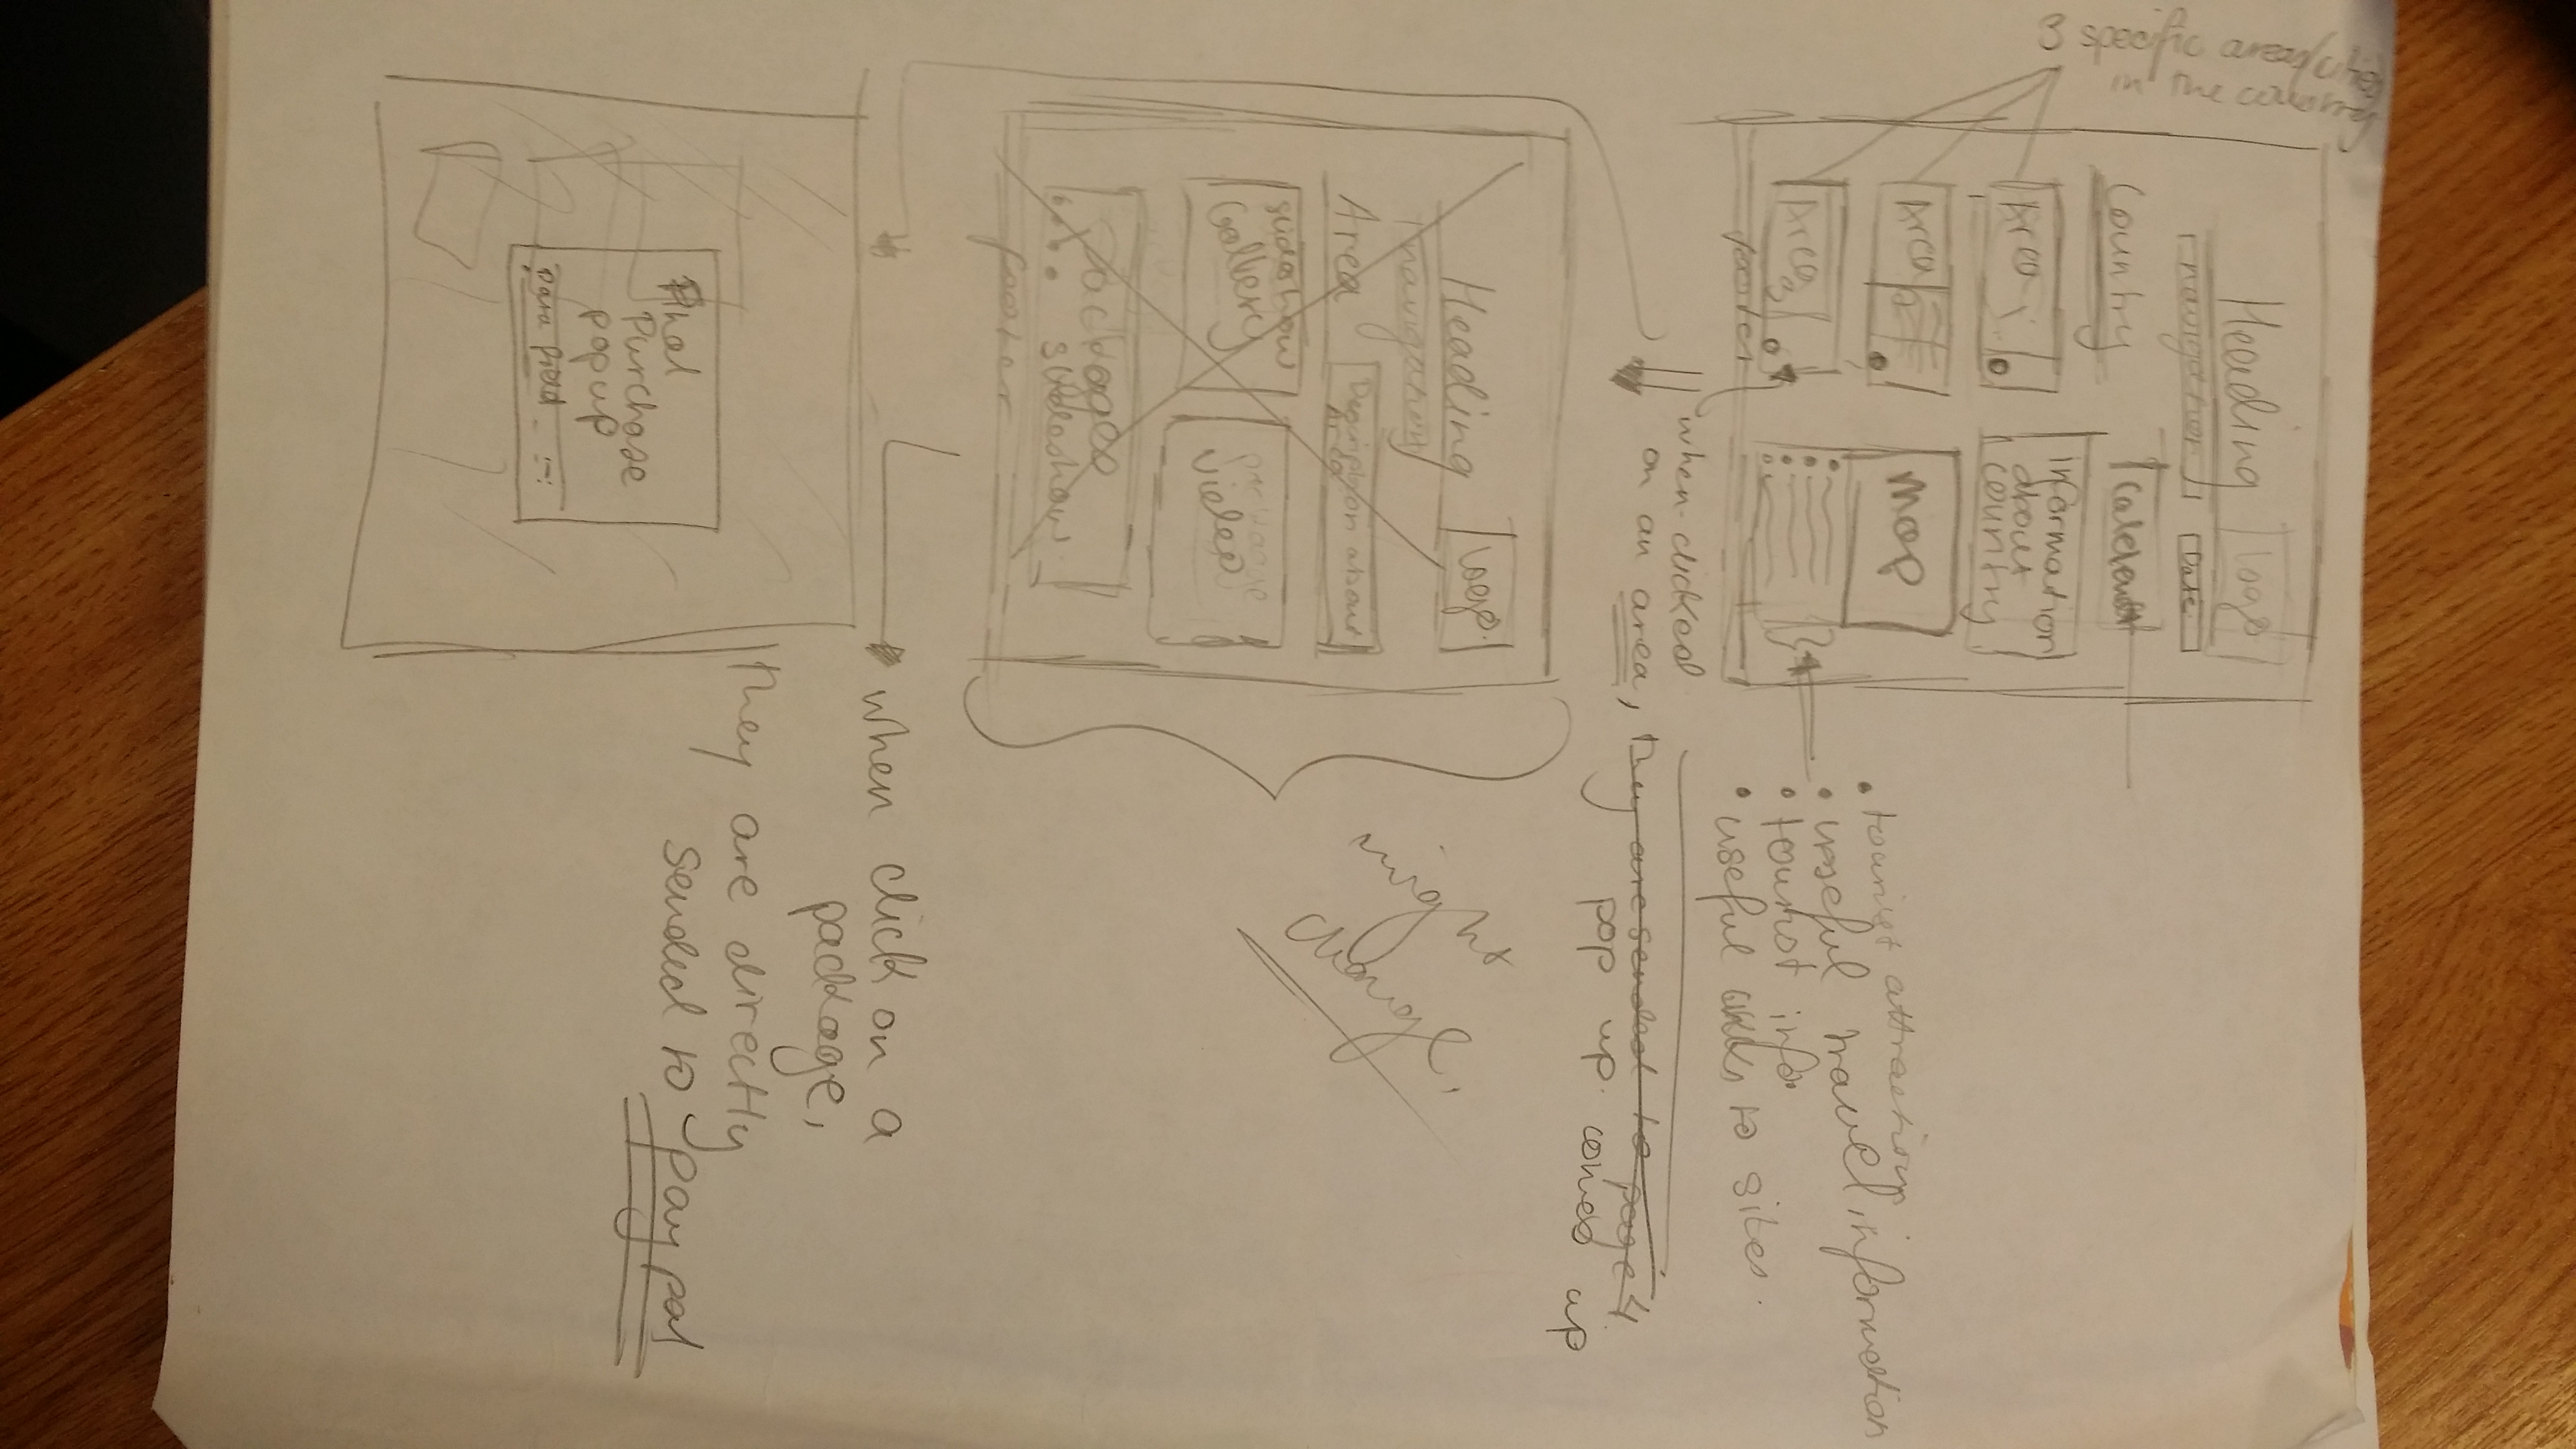 3 specific areas/cities
in the country
Heading
logo
navigation
Date
Country
Calendar
Area 1
Information
about
country
Area 2
map
Area 3
footer
• tourist attractions
• useful travel information
• tourist info
• useful links to sites.
when clicked
on an area, they are sended to page 4.
pop up comes up
Heading
logo
navigation
Area
Description about
Area
slideshow
Gallery
package
video
Packages
slideshow
footer
might
change
when click on a
package,
they are directly
sended to Paypal
Final
Purchase
pop up